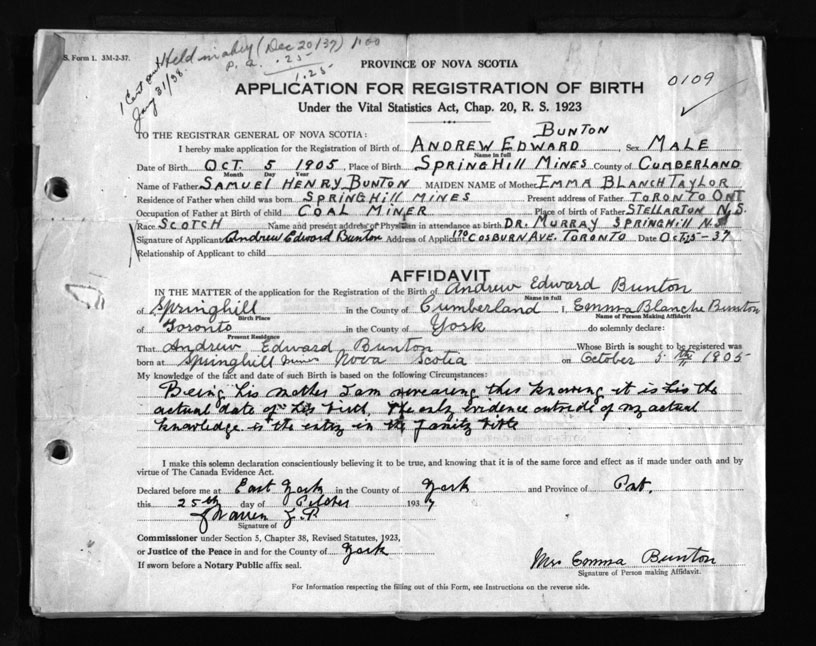 S. Form 1. 3M-2-37.
Held in abey (Dec 20/37) 1.00
.25
1.25
1 Cert sent
Jany 31/38.
PROVINCE OF NOVA SCOTIA
0109
APPLICATION FOR REGISTRATION OF BIRTH
Under the Vital Statistics Act, Chap. 20, R. S. 1923
TO THE REGISTRAR GENERAL OF NOVA SCOTIA:
BUNTON
I hereby make application for the Registration of Birth of ANDREW EDWARD, Sex MALE
Name in full
Date of Birth OCT. 5 1905, Place of Birth SPRINGHILL MINES County of CUMBERLAND
Month Day Year
Name of Father SAMUEL HENRY BUNTON MAIDEN NAME of Mother EMMA BLANCH TAYLOR
Residence of Father when child was born SPRINGHILL MINES Present address of Father TORONTO ONT
Occupation of Father at Birth of child COAL MINER Place of birth of Father STELLARTON N.S.
Race SCOTCH Name and present address of Physician in attendance at birth DR. MURRAY SPRINGHILL N.S
Signature of Applicant Andrew Edward Bunton Address of Applicant COSBURN AVE. TORONTO Date Oct 25-37
Relationship of Applicant to child
AFFIDAVIT
IN THE MATTER of the application for the Registration of the Birth of Andrew Edward Bunton
Name in full
of Springhill in the County of Cumberland I, Emma Blanche Bunton
Birth Place Name of Person Making Affidavit
of Toronto in the County of York do solemnly declare:
Present Residence
That Andrew Edward Bunton Whose Birth is sought to be registered was
born at Springhill Mines Nova Scotia on October 5th 1905
My knowledge of the fact and date of such Birth is based on the following Circumstances:
Being his mother I am swearing this knowing it is his the
actual date of his birth. The only evidence outside of my actual
knowledge is the entry in the family bible
I make this solemn declaration conscientiously believing it to be true, and knowing that it is of the same force and effect as if made under oath and by
virtue of The Canada Evidence Act.
Declared before me at East York in the County of York and Province of Ont.
this 25th day of October 1937
J Warren J.P.
Signature of
Commissioner under Section 5, Chapter 38, Revised Statutes, 1923,
or Justice of the Peace in and for the County of York
If sworn before a Notary Public affix seal.
Mrs Emma Bunton
Signature of Person making Affidavit.
For Information respecting the filling out of this Form, see Instructions on the reverse side.